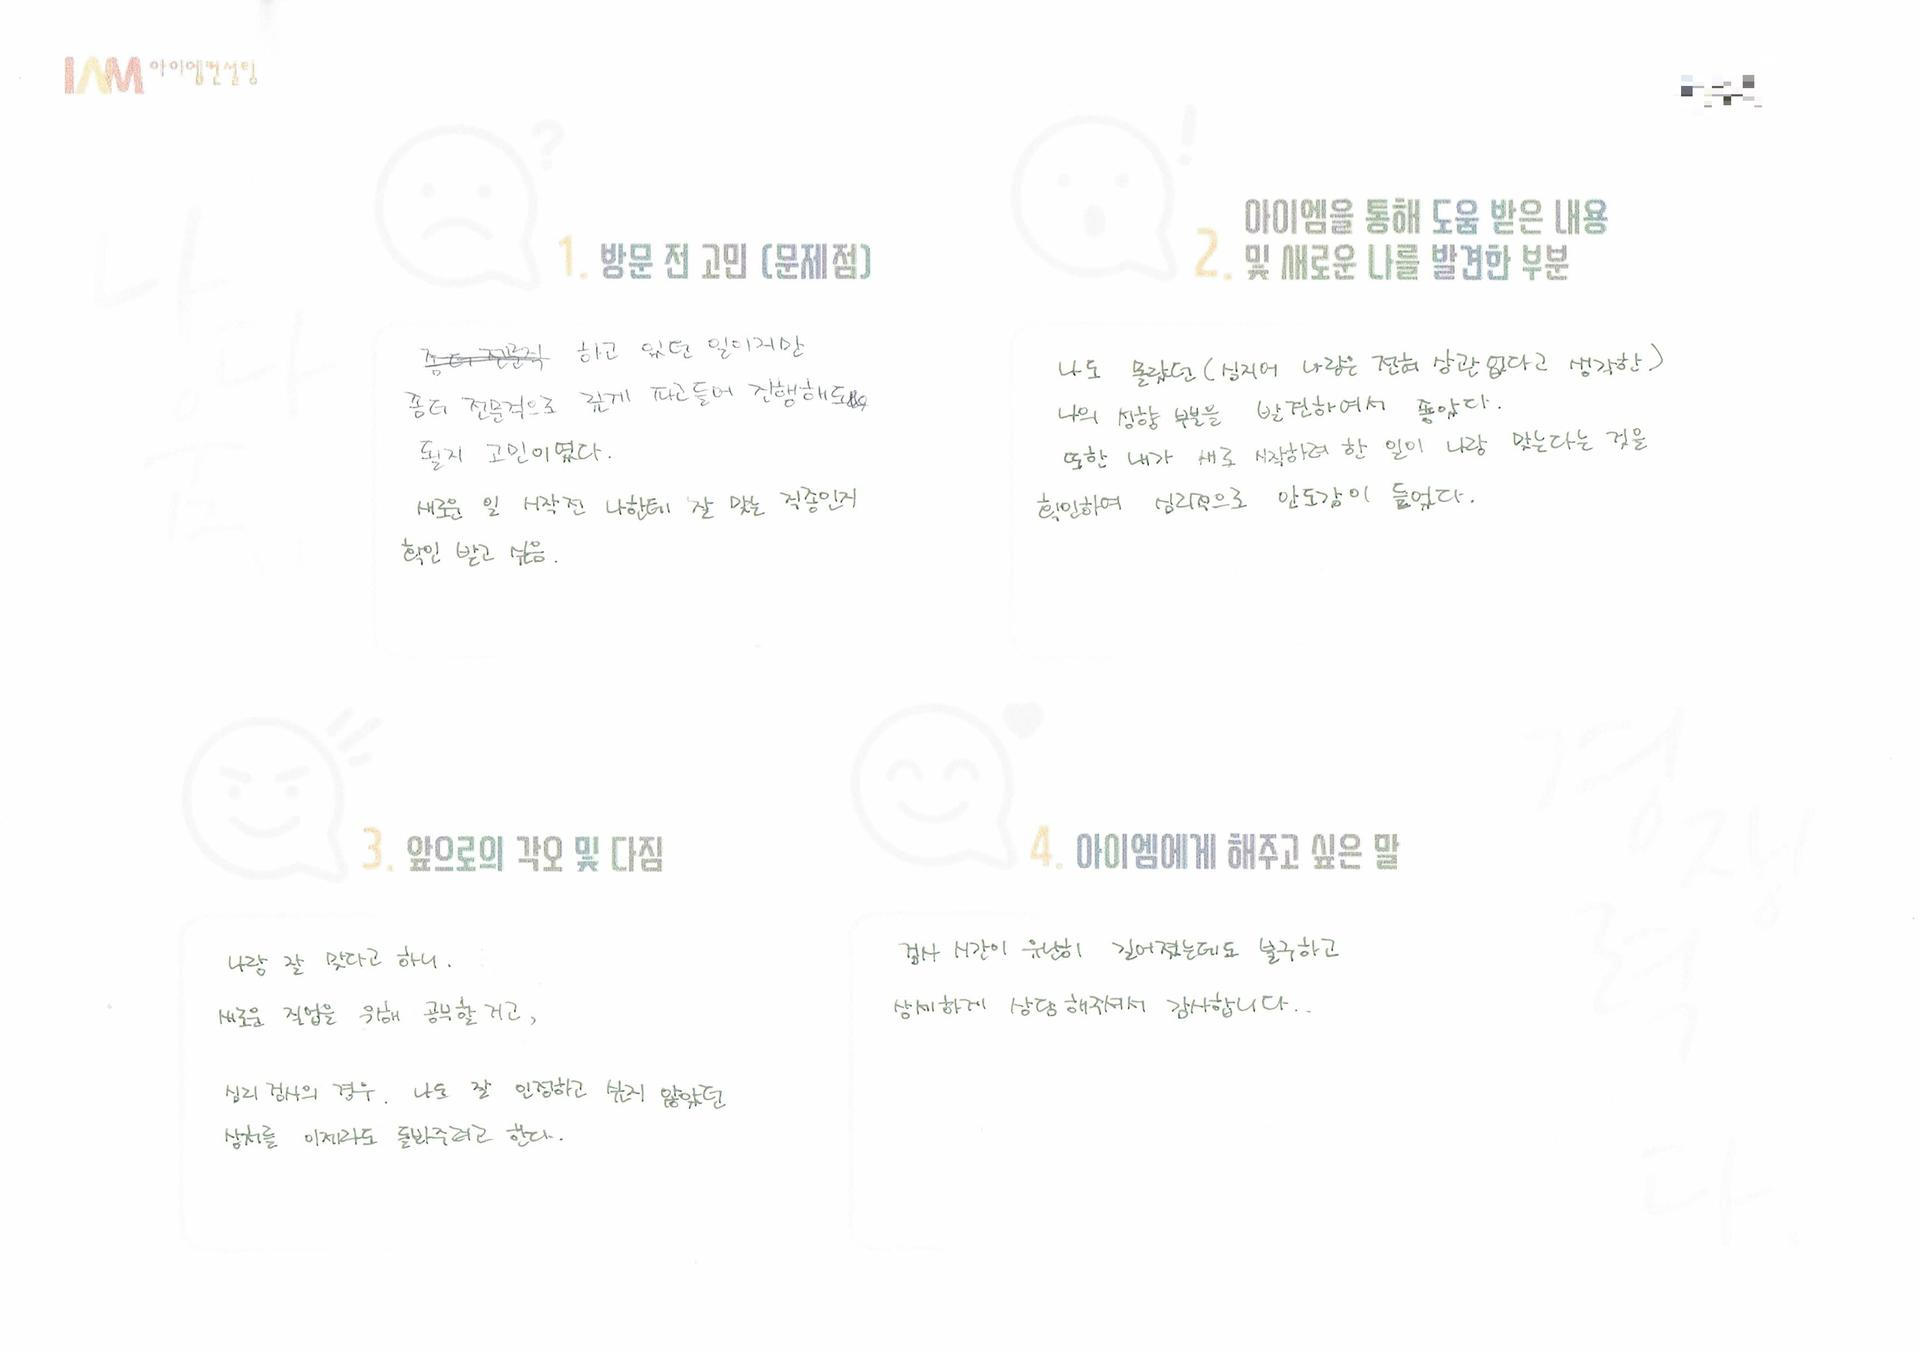 IAM 아이엠컨설팅
1. 방문 전 고민 (문제점)
좀더 전문직 하고 있던 일이지만
좀더 전문적으로 깊게 파고들어 진행해도
될지 고민이였다.
새로운 일 시작전 나한테 잘 맞는 직종인지
확인 받고 싶음.
2. 아이엠을 통해 도움 받은 내용
및 새로운 나를 발견한 부분
나도 몰랐던 (심지어 나랑은 전혀 상관 없다고 생각한)
나의 성향 부분을 발견하여서 좋았다.
또한 내가 새로 시작하려 한 일이 나랑 맞는다는 것을
확인하여 심리적으로 안도감이 들었다.
3. 앞으로의 각오 및 다짐
나랑 잘 맞다고 하니.
새로운 직업을 위해 공부할거고,
심리검사의 경우. 나도 잘 인정하고 싶지 않았던
상처를 이제라도 돌봐주려고 한다.
4. 아이엠에게 해주고 싶은 말
검사 시간이 유난히 길어졌는데도 불구하고
상세하게 상담해주셔서 감사합니다..
나다움
경쟁력
다